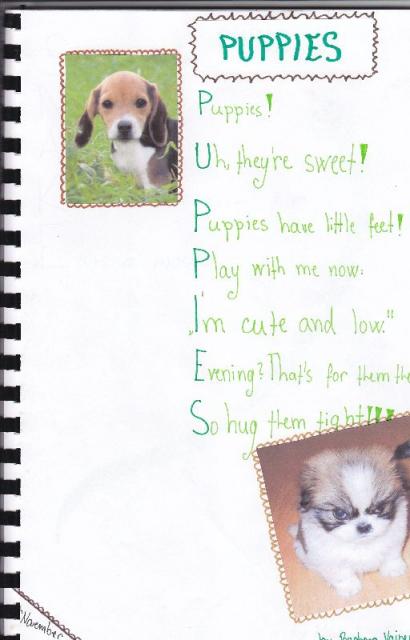 PUPPIES
Puppies!
Uh, they're sweet!
Puppies have little feet!
Play with me now:
„I'm cute and low."
Evening? That's for them the
So hug them tight!!!
by Barbara
November